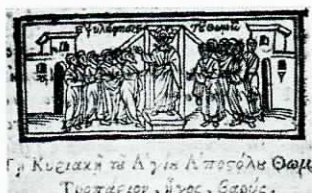 Η ψυλάφησις τοῦ Θωμᾶ
Τῇ Κυριακῇ τοῦ Ἁγίου Ἀποστόλου Θωμ
Τροπάριον, ἦχος, βαρύς,